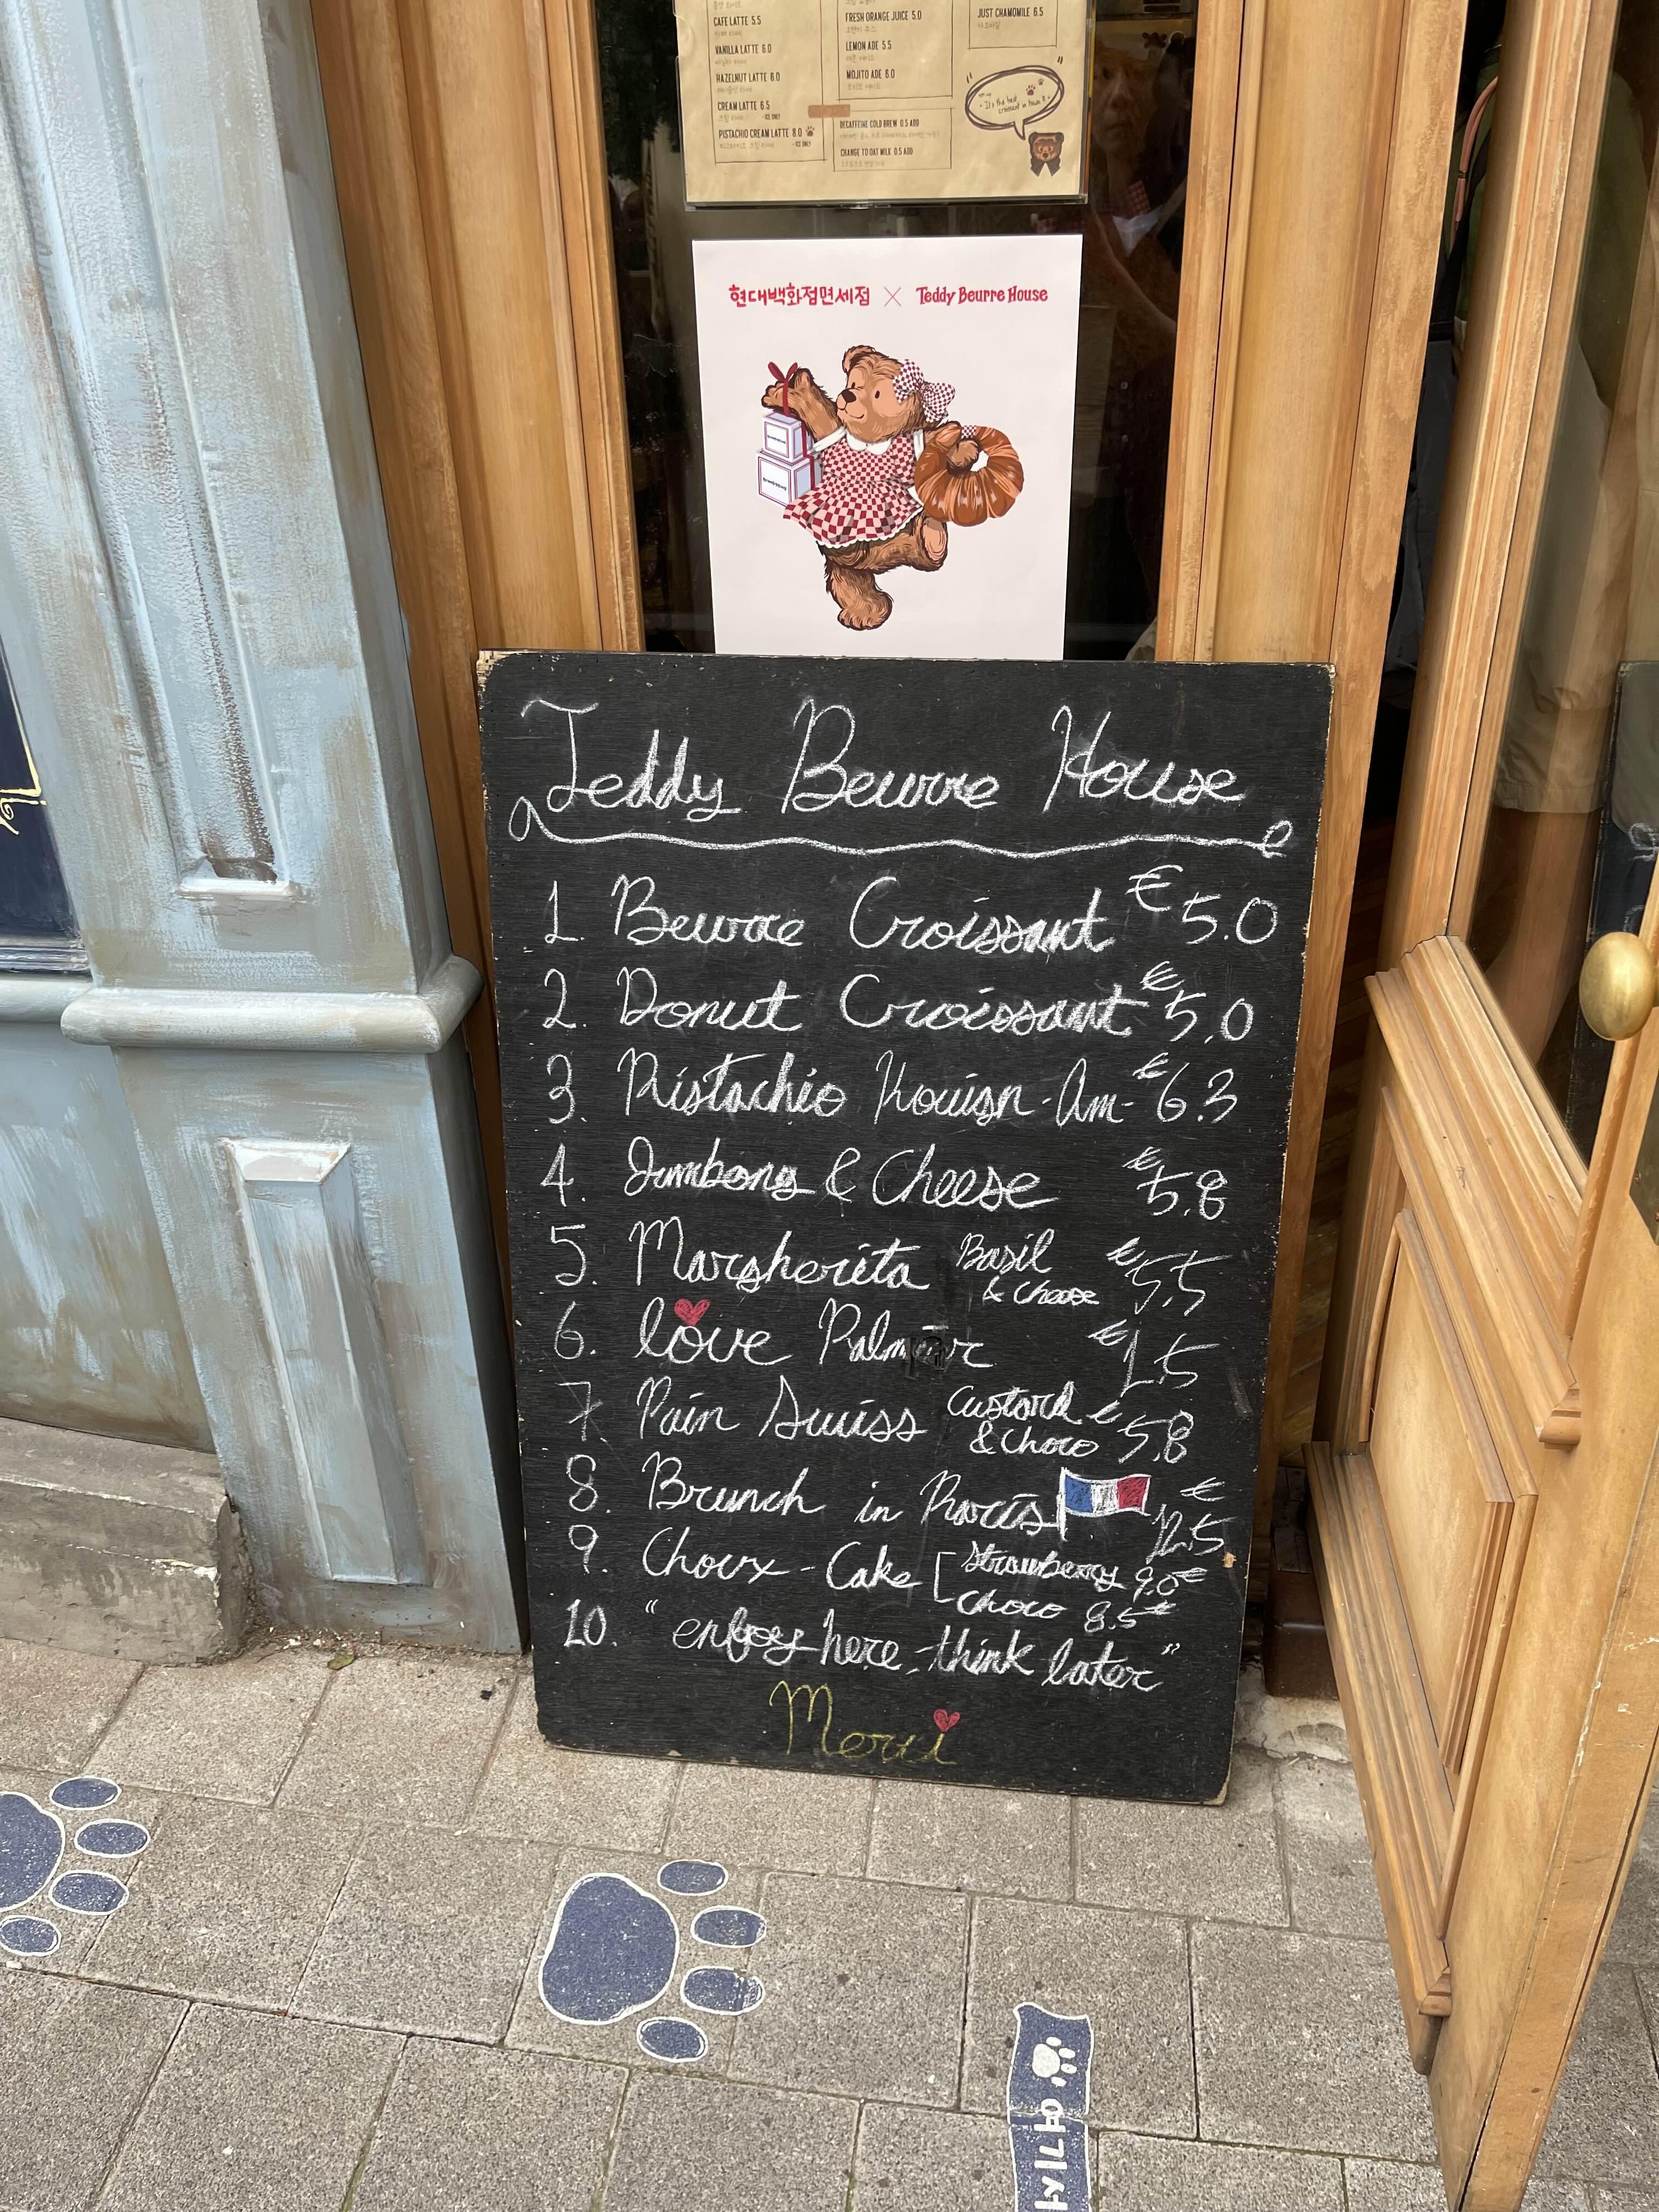 CAFE LATTE 5.5
VANILLA LATTE 6.0
HAZELNUT LATTE 6.0
CREAM LATTE 6.5
- ICE ONLY
PISTACHIO CREAM LATTE 8.0
- ICE ONLY
FRESH ORANGE JUICE 5.0
LEMON ADE 5.5
MOJITO ADE 6.0
DECAFFEINE COLD BREW 0.5 ADD
CHANGE TO OAT MILK 0.5 ADD
JUST CHAMOMILE 6.5
"It's the best
croissant in town!"
현대백화점면세점 × Teddy Beurre House
Teddy Beurre House
1. Beurre Croissant €5.0
2. Donut Croissant €5.0
3. Pistachio Kouign-Am- €6.3
4. Jambong & Cheese €5.8
5. Margherita Basil & Cheese €5.5
6. love Palmier €1.5
7. Pain Swiss Custard & Choco €5.8
8. Brunch in Paris €12.5
9. Choux-Cake [Strawberry 9.0€
Choco 8.5€
10. "enjoy here, think later"
Merci
여기서